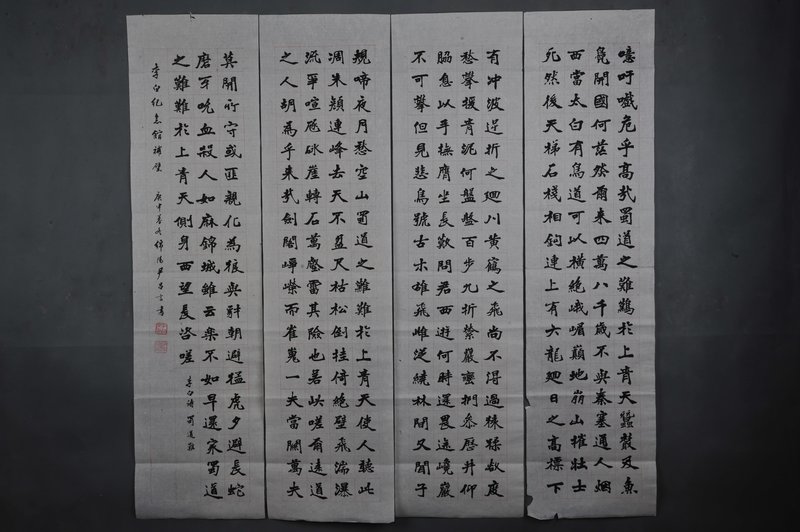 噫吁嚱危乎高哉蜀道之難難於上青天蠶叢及魚
鳧開國何茫然爾來四萬八千歲不與秦塞通人烟
西當太白有鳥道可以橫絕峨嵋巔地崩山摧壯士
死然後天梯石棧相鉤連上有六龍廻日之高標下
有冲波逆折之廻川黃鶴之飛尚不得過猿猱欲度
愁攀援青泥何盤盤百步九折縈巖巒捫參歷井仰
脇息以手撫膺坐長歎問君西遊何時還畏途巉巖
不可攀但見悲鳥號古木雄飛雌從繞林間又聞子
規啼夜月愁空山蜀道之難難於上青天使人聽此
凋朱顏連峰去天不盈尺枯松倒挂倚絕壁飛湍瀑
流爭喧豗砯崖轉石萬壑雷其險也若此嗟爾遠道
之人胡為乎來哉劍閣崢嶸而崔嵬一夫當關萬夫
莫開所守或匪親化為狼與豺朝避猛虎夕避長蛇
磨牙吮血殺人如麻錦城雖云樂不如早還家蜀道
之難難於上青天側身西望長咨嗟 李白詩蜀道難
李白紀念館補壁 庚申春 綿陽尹昌言書